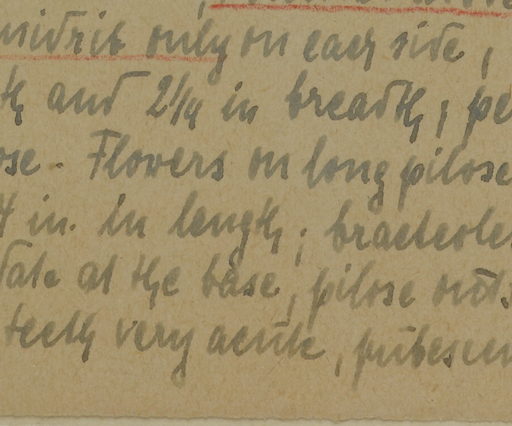 midrib only on each side,
th and 2 1/4 in breadth; pe
ose. Flowers on long pilose
4 in. in length; bracteoles
date at the base, pilose outs
teeth very acute, pubescen